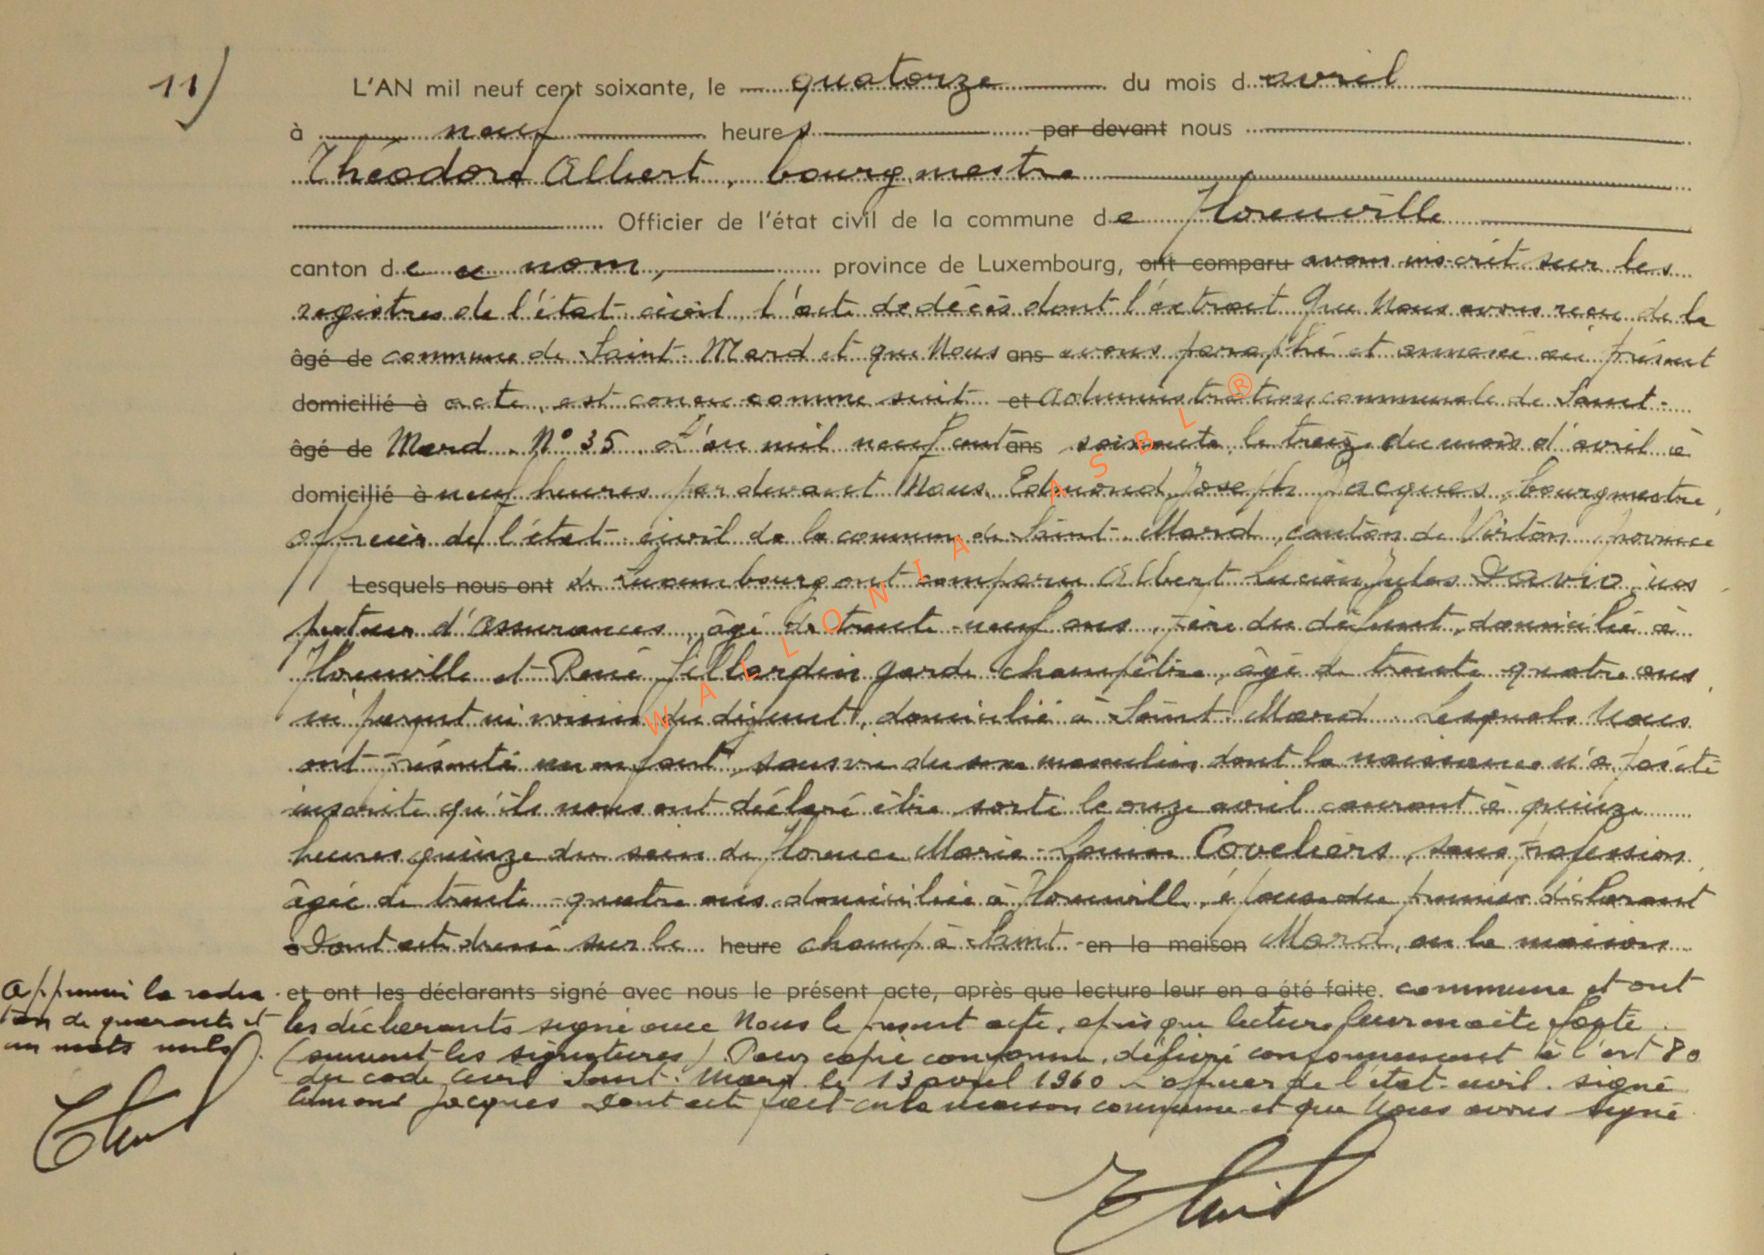 11)
L'AN mil neuf cent soixante, le quatorze du mois d avril
à neuf heures par devant nous
Théodore Albert, bourgmestre
Officier de l'état civil de la commune de Florenville
canton de ce nom, province de Luxembourg, ont comparu avons inscrit sur les
registres de l'état civil l'acte de décès dont l'extrait que Nous avons reçu de la
âgé de commune de Saint-Mard et que Nous ans avons paraphé et annexé au présent
domicilié à acte, est conçu comme suit et Administration communale de Saint-
âgé de Mard. N° 35. L'an mil neuf cent ans soixante, le treize du mois d'avril à
domicilié à neuf heures par devant Nous, Edmond Joseph Jacques, bourgmestre,
officier de l'état civil de la commune de Saint-Mard, canton de Virton, province
Lesquels nous ont de Luxembourg ont comparu Albert Lucien Jules Davio, ins
pecteur d'assurances, âgé de trente-neuf ans, père du défunt, domicilié à
Florenville et René garde champêtre, âgé de trente quatre ans,
ni parent ni voisin du défunt, domicilié à Saint-Mard. Lesquels Nous
ont présenté un enfant sans vie du sexe masculin, dont la naissance n'a pas été
inscrite qu'ils nous ont déclaré être sorti le onze avril courant à quinze
heures quinze du sein de Florence Marie-Louise Coveliers, sans profession,
âgée de trente-quatre ans, domiciliée à Florenville, épouse du premier déclarant
Dont acte dressé sur le heure champ à Saint- en la maison Mard, en la maison
et ont les déclarants signé avec nous le présent acte, après que lecture leur en a été faite. commune et ont
les déclarants signé avec Nous le présent acte, après que lecture leur en a été faite.
(suivent les signatures) Pour copie conforme, délivré conformément à l'art 80
du code civil Saint-Mard le 13 avril 1960 L'officier de l'état-civil. signé
Edmond Jacques Dont acte fait en la maison commune et que Nous avons signé
Approuvé la radia
tion de quarante et
un mots nuls
WALLONIA ASBL ®